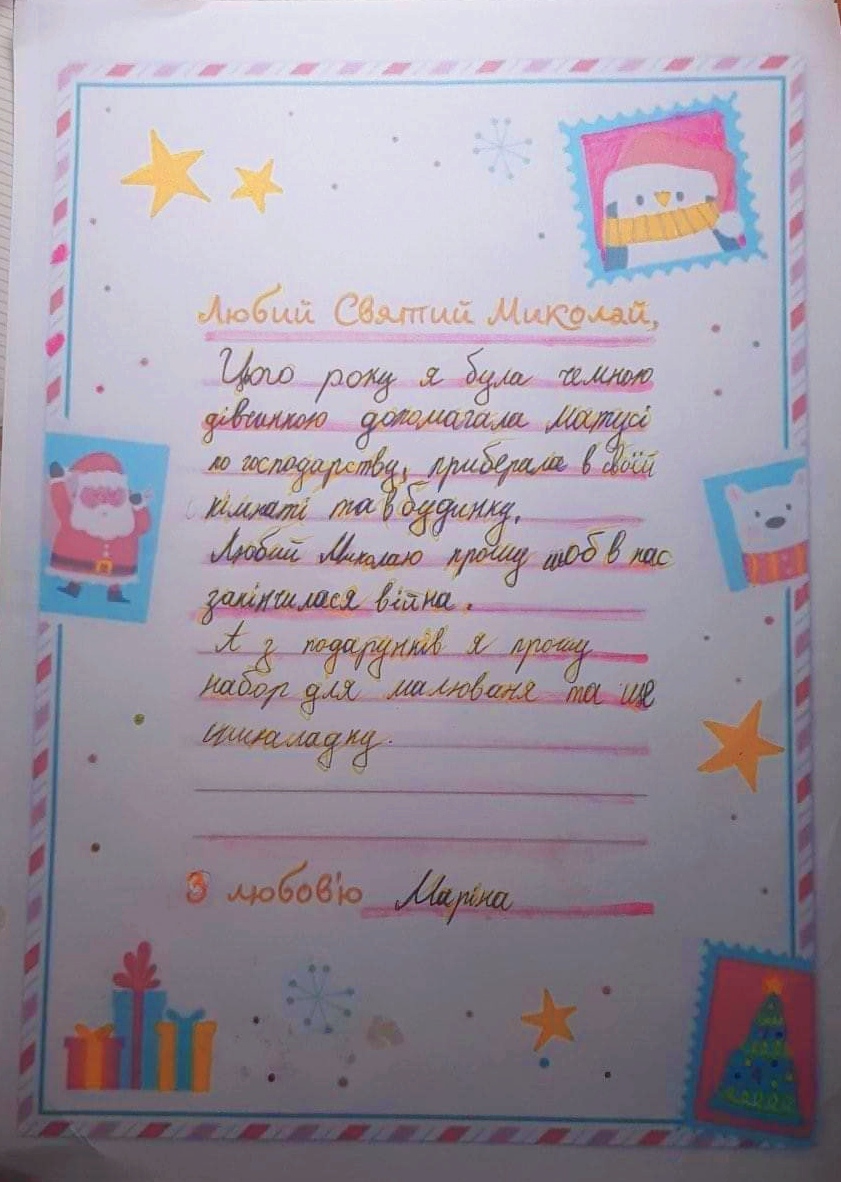 Любий Святий Миколай,
Цього року я була чемною
дівчинкою допомагала Матусі
по господарству, приберала в своїй
кімнаті та в будинку.
Любий Миколаю прошу щоб в нас
закінчилася війна.
А з подарунків я прошу
набор для малюваня та ще
шикаладку.
З любов'ю Маріна